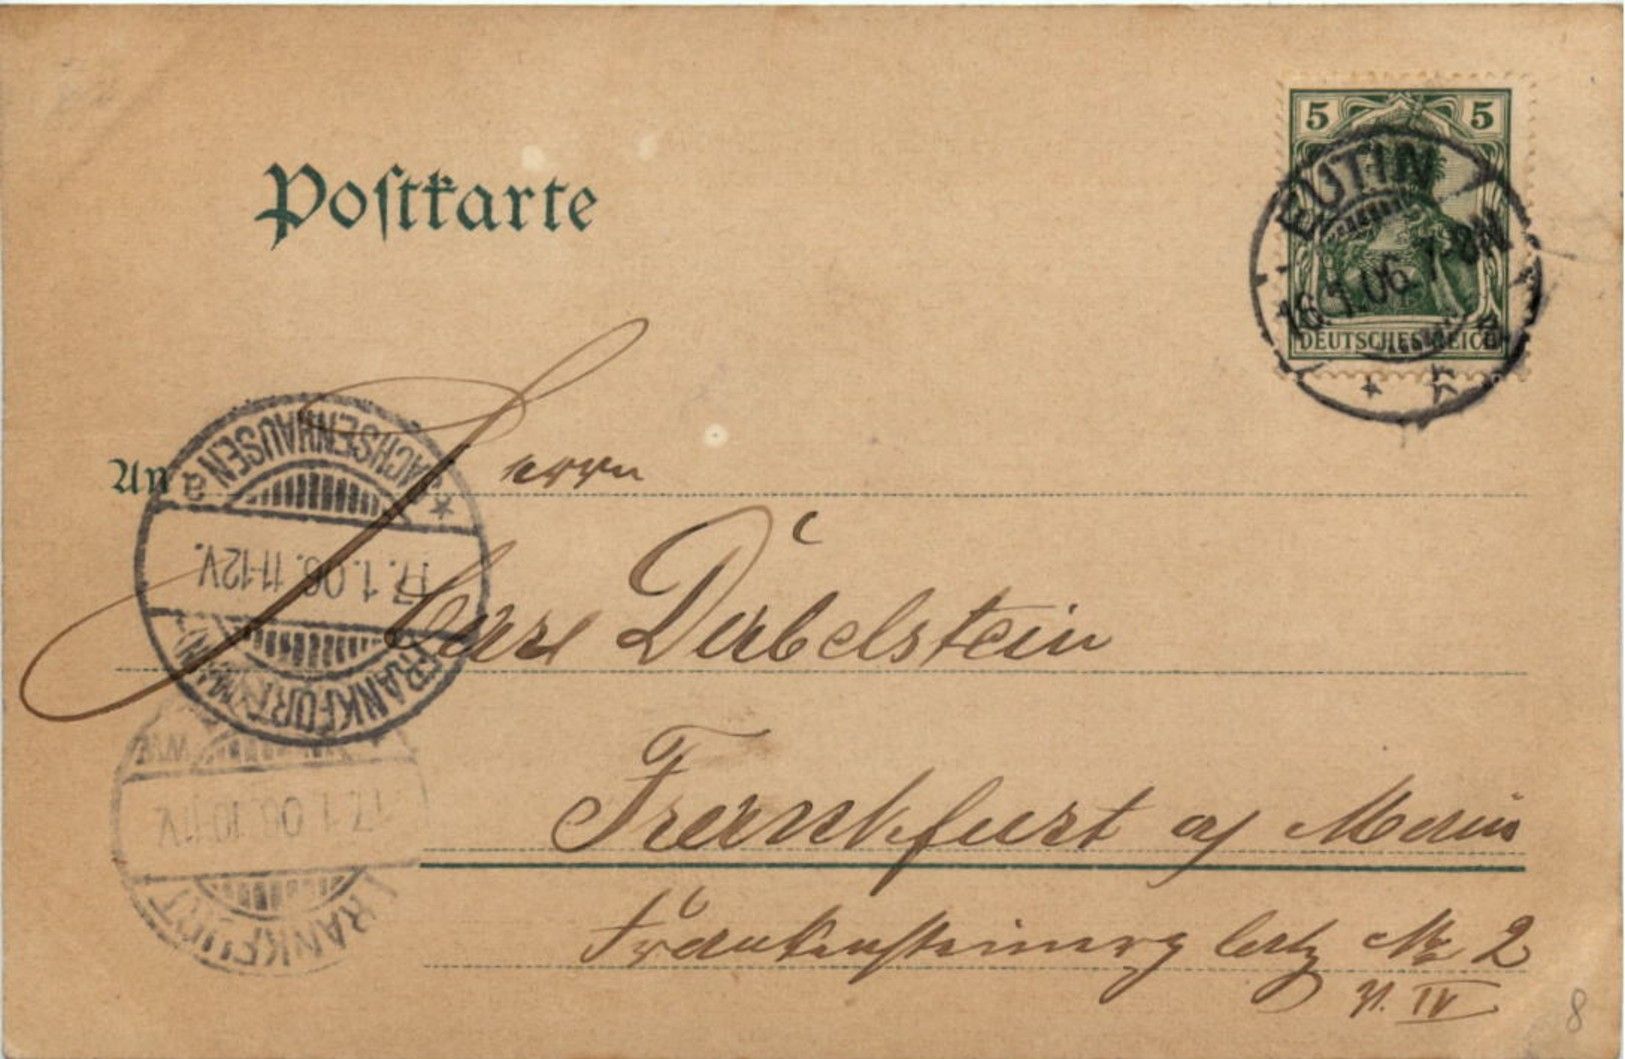 Postkarte
5 5
EUTIN
16.1.06. 7-8N
DEUTSCHES REICH
An Herrn
SACHSENHAUSEN a
17.1.06. 11-12V.
FRANKFURT (MAIN)
Carl Dübelstein
17.1.06. 10-11V
FRANKFURT
Frankfurt a/ Main
Frankensteinerplatz No 2
IV
8